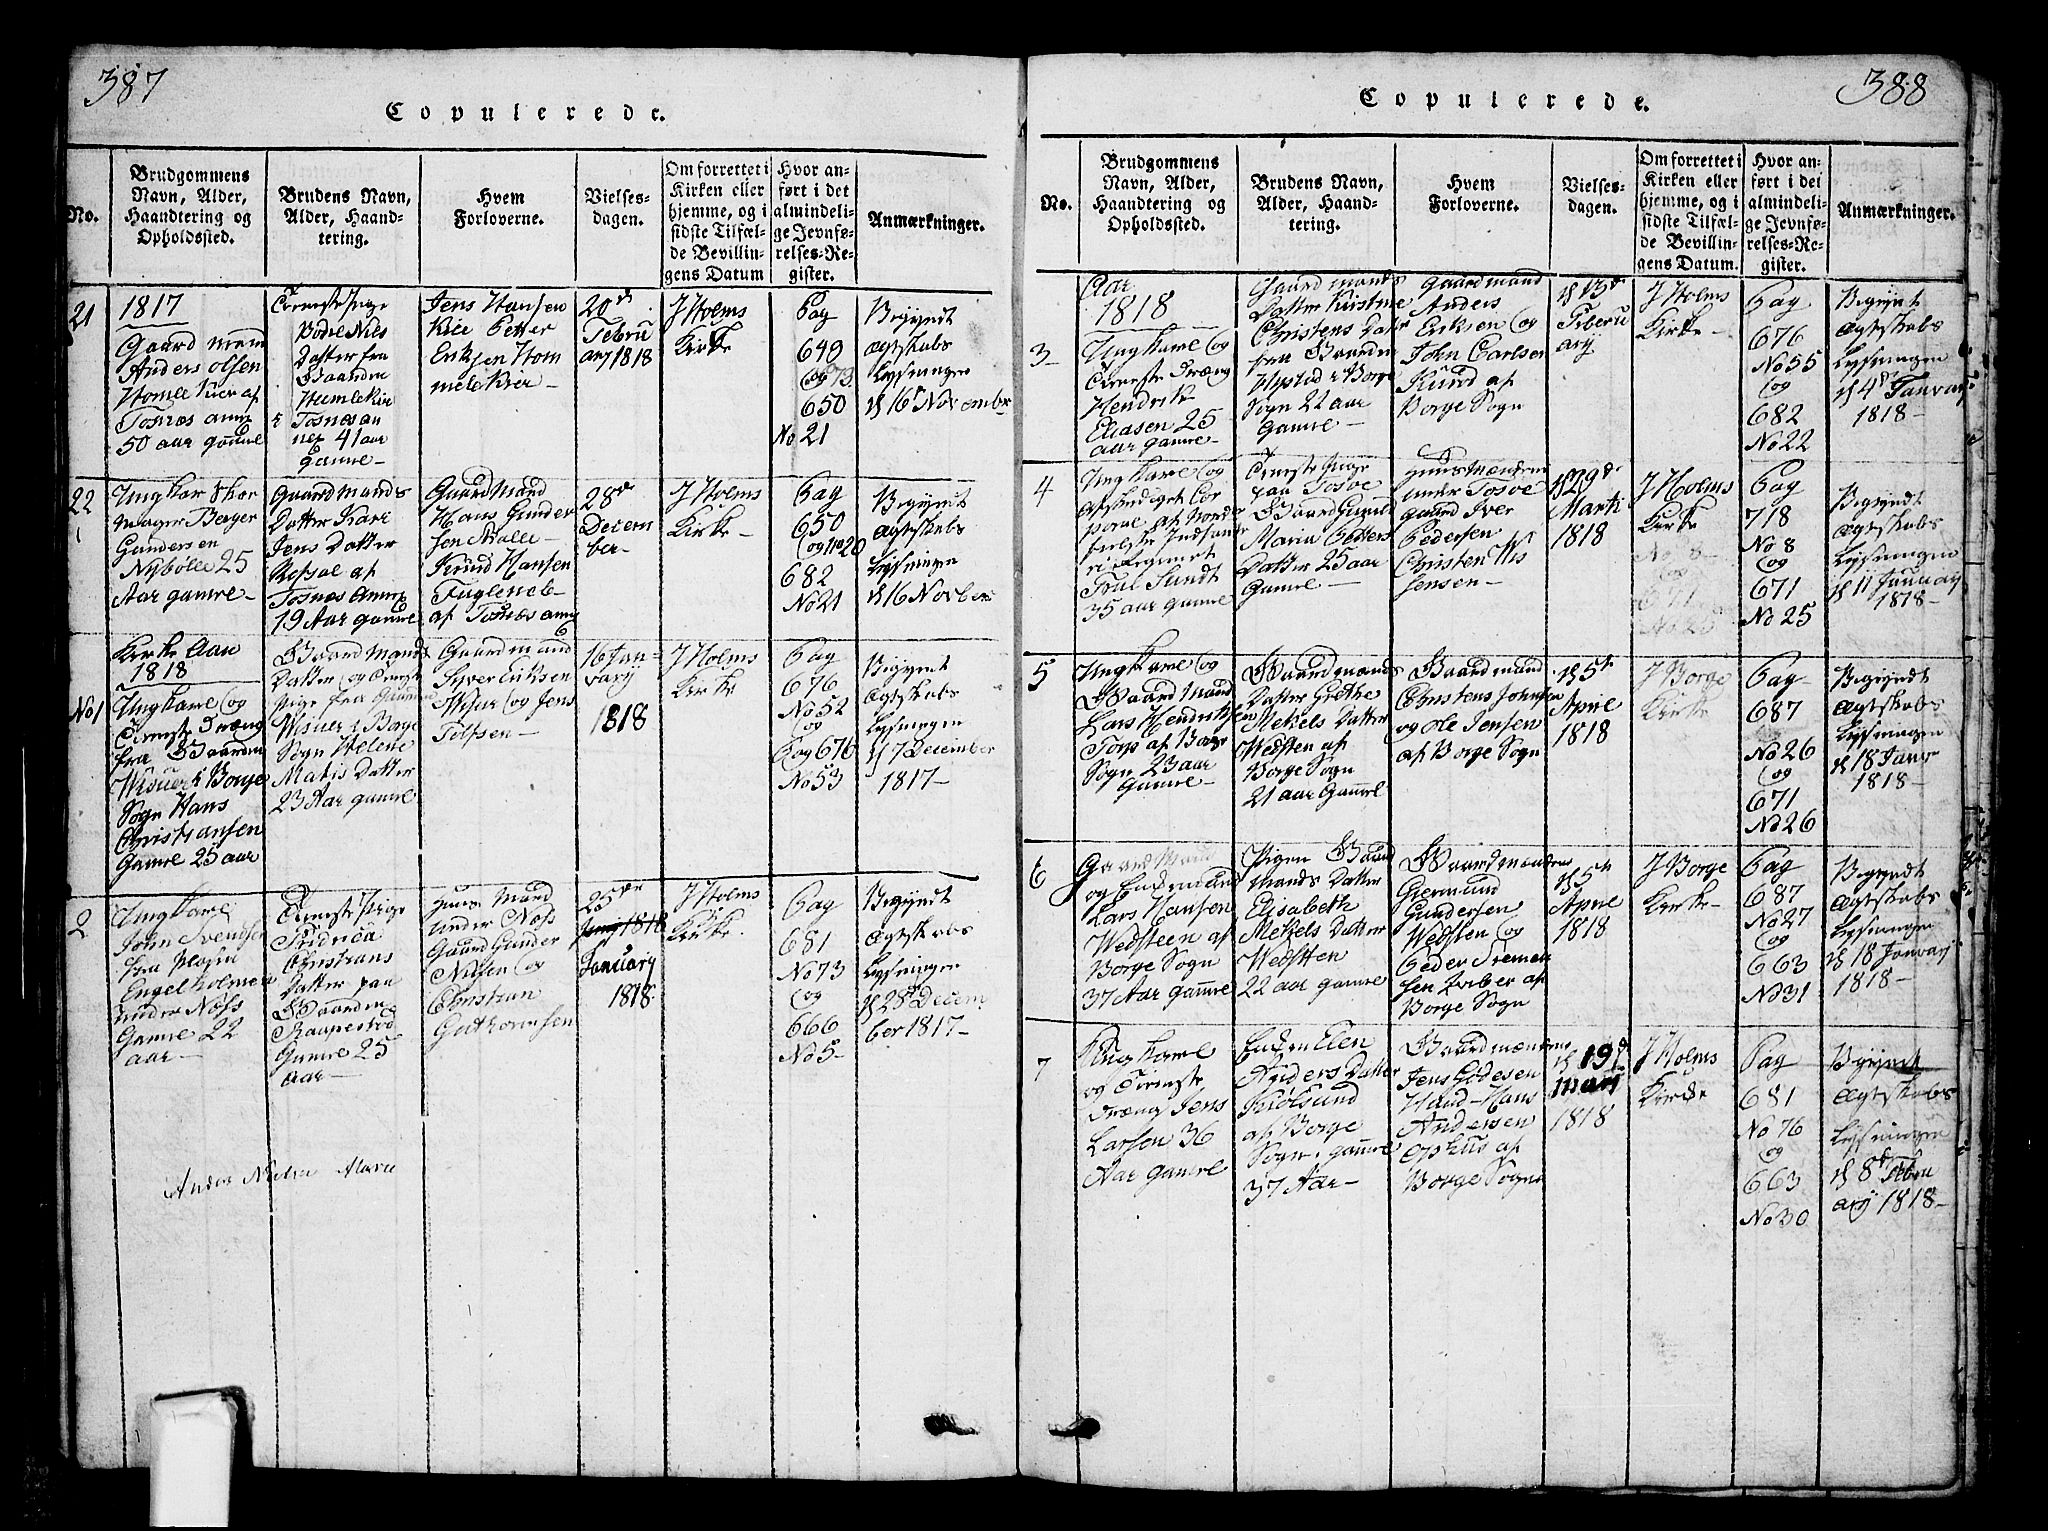 387
Copulerede.
No.
Brudgommens
Navn, Alder,
Haandtering og
Opholdssted.
Brudens Navn,
Alder, Haand-
tering.
Hvem
Forloverne.
Vielses-
dagen.
Om forrettet i
Kirken eller
hjemme, og i
sidste Tilfæl-
de Bevillin-
gens Datum
Hvor an-
ført i det
almindeli-
ge Jevnfø-
relses-Re-
gister.
Anmærkninger.
21
1817
Gaard mand
Anders Olsen
Homle Kier af
Tosnæs annx
50 aar gamle
Tieneste Pige
Bodil Niels
Datter fra
Gaarden
Humlekier
i Tosnæs an
nex 41 aar
Gamle
Jens Hansen
Kiæ Petter
Eriksen Hom
mele Kier
20de
Febru
ary 1818
I Holms
Kirke
Pag
649
og 73
650
No 21
Begyndt
Ægteskabs
Lysningen
d 16 November
22
Ungkar Skoe
mager Berger
Gundersen
Nybølle 25
Aar gamle
Gaard mands
Datter Kari
Jens Datter
Rossal af
Tosnæs Annx
19 Aar gamle
Gaard Mand
Hans Gunder
sen Ralle
Knud Hansen
Fugleneb
af Tosnæs annx
28de
Decem
ber
I Holms
Kirke
Pag
650
og No 20
682
No 21
Begyndt
Ægteskabs
Lysningen
d 16 Novber
No 1
Kirke Aar
1818
Ung Karl og
Tieneste Dræng
fra Gaarden
Wisuer i Borge
Sogn Hans
Christiansen
Gamle 25 aar
Gaard Mands
Datter og Tieneste
Pige fra Gaarden
Wisuer i Borge
Sogn Helene
Matis Datter
23 Aar gamle
Gaard mand
Syver Eriksen
Wisur og Jens
Tolfsen
16 Jan-
uary
1818
I Holms
Kirke
Pag
676
No 52
Pag 676
No 53
Begyndt
Ægteskabs
Lysningen
d 7 December
1817
2
Ung Karl
John Svendsen
fra Pladsen
Engelholmen
under Nøss
Gamle 22
aar
Tieneste Pige
Fridrica
Christians
Datter paa
Gaarden
Raapestad
Gamle 25
aar
Huus Mand
under Nøss
Gaard Gunder
Nilsen og
Christian
Guthormsen
25de
1818
January
1818
I Holms
Kirke
Pag
681
No 73
og
666
No 5
Begyndt
Ægteskabs
Lysninger
d 28de Decem
ber 1817
388
Copulerede.
No.
Brudgommens
Navn, Alder,
Haandtering og
Opholdssted.
Brudens Navn,
Alder, Haand-
tering.
Hvem
Forloverne.
Vielses-
dagen.
Om forrettet i
Kirken eller
hjemme, og i
sidste Tilfæl-
de Bevillin-
gens Datum.
Hvor an-
ført i det
almindeli-
ge Jevnfø-
relses-Re-
gister.
Anmærkninger.
3
Aar
1818
Ung Karl og
Tieneste Dræng
Hendrik
Eliasen 25
aar gamle
Gaard mands
Datter Kristine
Christens Datter
fra Gaarden
Hystad i Borge
Sogn 22 aar
Gamle
Gaard mand
Anders
Eriksen og
John Carlsen
Kiind af
Borge Sogn
d 13de
Feberu
ary
I Holms
Kirke
Pag
676
No 55
og
682
No 22
Begyndt
Ægteskabs
Lysningen
d 4de Januay
1818
4
Ung Karl og
Afskediget Cor
poral af Norden
fielske Infante
ri Regiment
Trul Sundt
35 aar gamle
Tieneste Pige
paa Tosøe
Gaard Gunild
Maria Petters
Datter 25 aar
Gamle
Huusmændene
under Tosøe
gaard Iver
Pedersen
Christen Nis
Jensen
d 29de
Marti
1818
I Holms
Kirke
No 8
og
671
No 25
Pag
718
No 8
og
671
No 25
Begyndt
Ægteskabs
Lysningen
d 11 Januay
1818
5
Ung Karl og
Gaard Mand
Lars Hendriksen
Torp af Borge
Sogn 23 aar
Gamle
Gaard mands
Datter Grethe
Mekels Datter
Wedsten af
Borge Sogn
21 aar Gamle
Gaard mand
Christens Johnsen
og Ole Jensen
af Borge Sogn
d 5te
Aprie
1818
I Borge
Kirke
Pag
687
No 26
og
671
No 26
Begyndt
Ægteskabs
Lysningen
d 18 Janr
1818
6
Gaard Mand
og Enkemand
Lars Hansen
Wedsteen af
Borge Sogn
37 Aar gamle
Pigen Gaard
Mands Datter
Elisabeth
Mekels Datter
Wedstten
22 aar gamle
Gaard mændene
Giermund
Gundersen
Wedsten og
Peder
sen af
Borge Sogn
d 5te
Aprie
1818
I Borge
Kirke
Pag
687
No 27
og
663
No 31
Begyndt
Ægteskabs
Lysningen
d 18 Januay
1818
7
Ung Karl
og Tieneste
Dræng Jens
Larsen 36
Aar gamle
Enken Elen
Anders Datter
Kiølsund
af Borge
Sogn gamle
37 Aar
Gaard mændene
Jens Godesen
Haud Hans
Andersen
Ophus af
Borge Sogn
d 19de
mars
1818
I Holms
Kirke
Pag
681
No 76
og
663
No 30
Begyndt
Ægteskabs
Lysningen
d 8de Febru
ary 1818